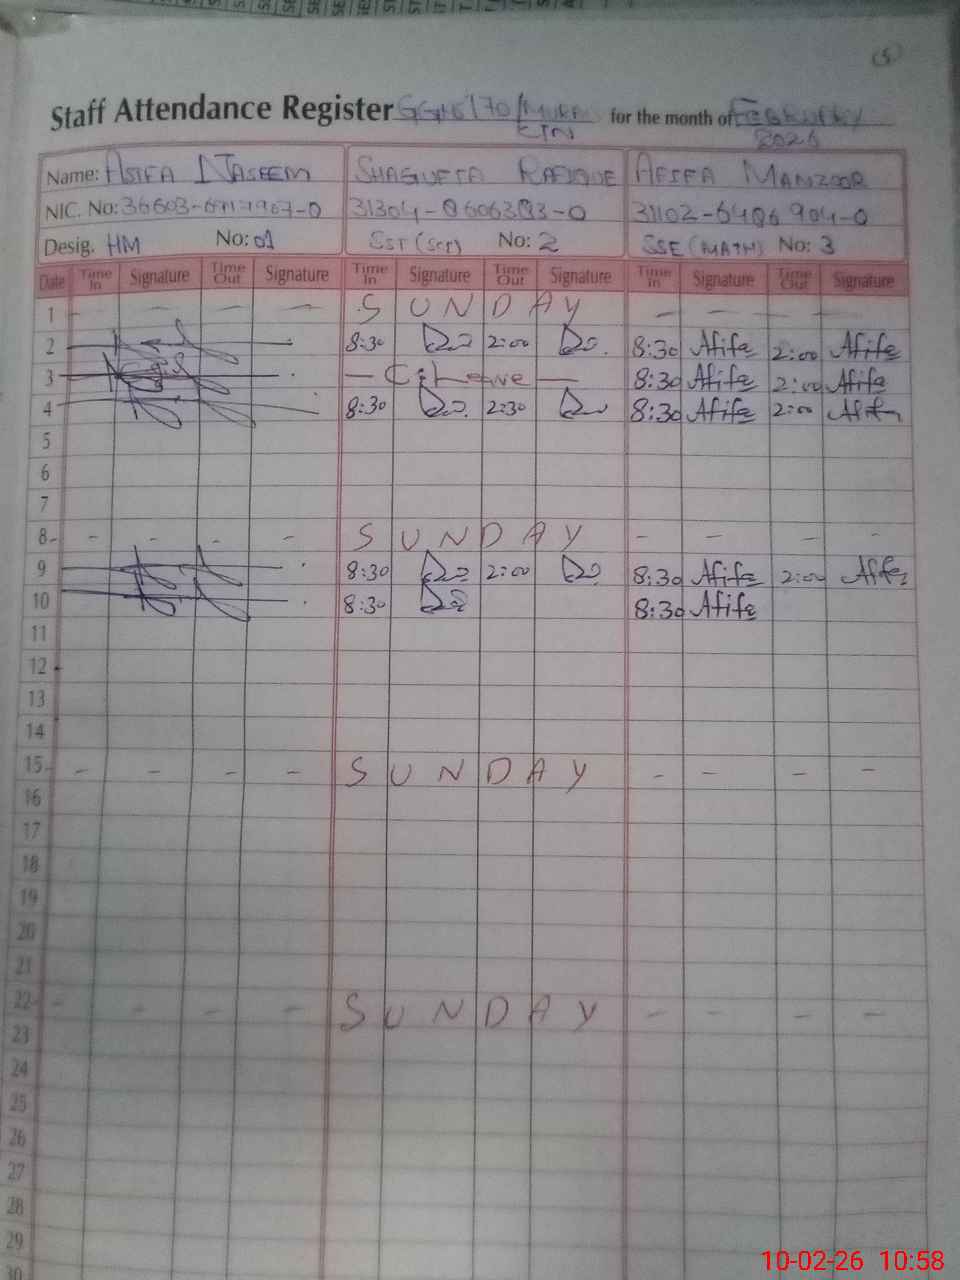 (5)
Staff Attendance Register for the month of February
2026
Name: ASIFA NASEEM SHAGUFTA RAFIQUE AFIFA MANZOOR
NIC. No: 31304-0606303-0 31102-6406904-0
Desig. HM No: 01 SST (Sci) No: 2 SSE (MATH) No: 3
Date Time In Signature Time Out Signature Time In Signature Time Out Signature Time In Signature Time Out Signature
1 - - - - S U N D A Y - - - -
2 8:30 2:00 8:30 Afifa 2:00 Afifa
3 - Leave - 8:30 Afifa 2:00 Afifa
4 8:30 2:30 8:30 Afifa 2:00 Afifa
5
6
7
8 - - - - S U N D A Y - - - -
9 8:30 2:00 8:30 Afifa 2:00 Afifa
10 8:30 8:30 Afifa
11
12
13
14
15 - - - - S U N D A Y - - - -
16
17
18
19
20
21
22 - - - - S U N D A Y - - - -
23
24
25
26
27
28
29
30
10-02-26 10:58